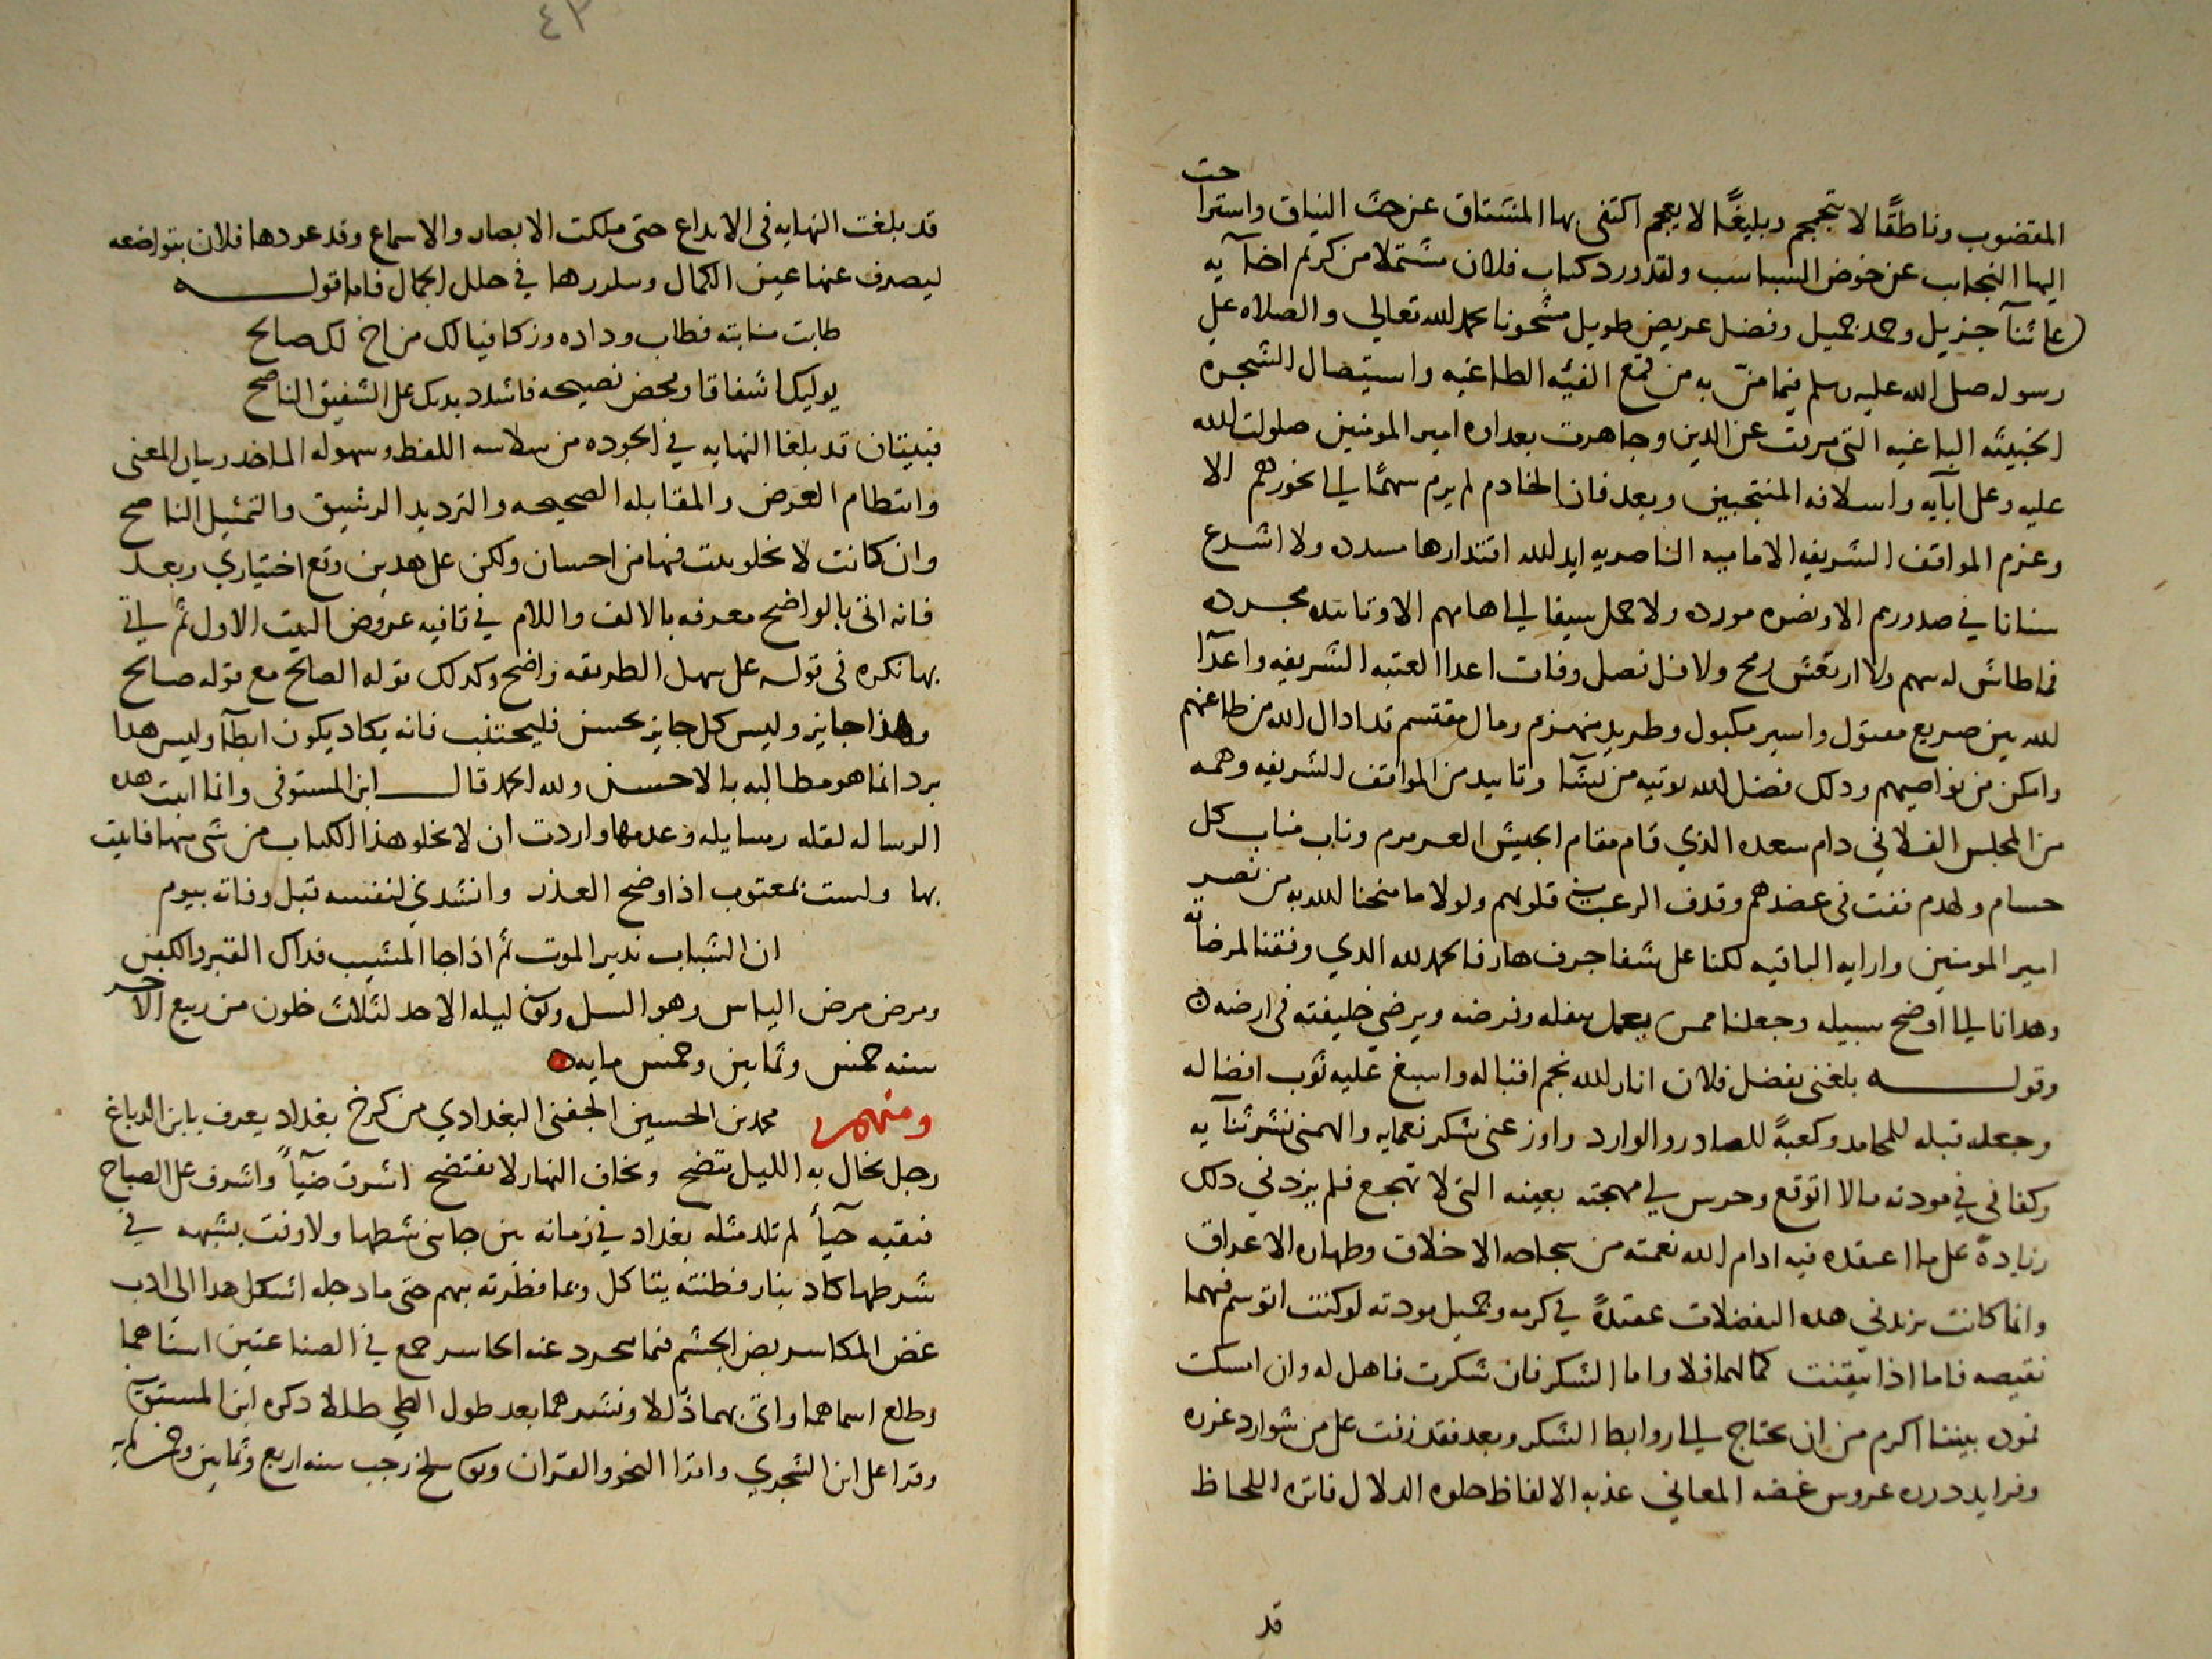 المقضوب وناطقًا لا يتجمجم وبليغًا لا يعجم اكتفى بها المشتاق عن حث النياق واستراحت
اليها النجاب عن خوض السباسب ولقد ورد كتاب فلان مشتملا من كرم اخآيه
على ثنآ جزيل وحمد جميل وفضل عريض طويل مشحونا بحمد الله تعالى والصلاه على
رسوله صلى الله عليه وسلم فيما منّ به من قمع الفيه الطاغيه واستيصال الشجره
الخبيثه الباغيه التي مرقت عن الدين وجاهرت بعداوه امير المومنين صلوات الله
عليه وعلى ابآيه واسلافه المنتجبين وبعد فان الخادم لم يرم سهمًا الى نحورهم الا
وعزم المواقف الشريفه الاماميه الناصريه ايد الله اقتدارها مسدده ولا اشرع
سنانا في صدورهم الا ونصره مورده ولا حمل سيفا الى هامهم الا وتاييده مجرده
فما طاش له سهم ولا ارتعش رمح ولا فل نصل وفات اعدا العتبه الشريفه واعدآ
لله بين صريع مقتول واسير مكبول وطريد منهزم ومال مقتسم قد ادال الله من طاغيتهم
وامكن من نواصيهم وذلك فضل الله يوتيه من يشا وتاييد من المواقف الشريفه وهمه
من المجلس الفلاني دام سعده الذي قام مقام الجيش العرمرم وناب مناب كل
حسام ولهذم ففت في عضدهم وقذف الرعب في قلوبهم ولولا ما منحنا الله به من نصر
امير المومنين وارايه الباقيه لكنا على شفا جرف هار فالحمد لله الذي وفقنا لمرضاته
وهدانا الى اوضح سبيله وجعلنا ممن يعمل بنفله وفرضه ويرضي خليفته في ارضه
وقوله بلغني بفضل فلان انار الله نجم اقباله واسبغ عليه ثوب افضاله
وجعله قبله للمحامد وكعبةً للصادر والوارد واوزعني شكر نعمايه والهمني نشر ثنآيه
وكفاني في مودته مالا اتوقع وحرس لي مهجته بعينه التي لا تهجع فلم يزدني ذلك
زيادة على ما اعتقده فيه ادام الله نعمته من سجاحه الاخلاق وطهاره الاعراق
وانما كانت تزيدني هذه التفضلات عقيدةً في كرمه وجميل مودته لو كنت اتوسم فيهما
نقيصه فاما اذا تيقنت كمالهما فلا واما الشكر فان شكرت فاهل له وان امسكت
فمودة بيننا اكرم من ان تحتاج الى روابط الشكر وبعد فقد زفت على من شوارد غرره
وفرايد درره عروس غضه المعاني عذبه الالفاظ حلوه الدلال فاتره اللحاظ
قد
٤٣
قد بلغت النهايه في الابداع حتى ملكت الابصار والاسماع وقد عودها فلان بتواضعه
ليصرف عنها عين الكمال وسلورها في حلل الجمال فاما قوله
طابت منابته فطاب وداده وزكا فيالك من اخ لك صالح
يوليك اشفاقا ومحض نصيحه فاشدد يديك على الشفيق الناصح
فبيتان قد بلغا النهايه في الجوده من سلاسه اللفظ وسهوله الماخذ وبيان المعنى
وانتظام الغرض والمقابله الصحيحه والترديد الرشيق والتمثيل الناصح
وان كانت لا تخلو بيت فيها من احسان ولكن على هذين وقع اختياري وبعد
فانه اتى بالواضح معرفه بالالف واللام في قافيه عروض البيت الاول ثم ياتي
بها نكره في قوله على سهل الطريقه واضح وكذلك قوله الصالح مع قوله صالح
وهذا جايز وليس كل جايز يحسن فليجتنب فانه يكاد يكون ايطآ وليس هذا
برد انما هو مطالبه بالاحسن ولله الحمد قال ابن المستوفي وانما اثبت هذه
الرساله لقله رسايله وعدمها واردت ان لا يخلو هذا الكتاب من شي منها فاتيت
بها ولست بمعتوب اذا وضح العذر وانشدني لنفسه قبل وفاته بيوم
ان الشباب نذير الموت ثم اذا جا المشيب فذاك القبر والكفن
ومرض مرض الياس وهو السل وتوفي ليله الاحد لثلاث خلون من ربيع الآخر
سنه خمس وثمانين وخمس مايه
ومنهم محمد بن الحسين الجفني البغدادي من كرخ بغداد يعرف بابن الدباغ
رجل يخال به الليل يتضح ويخاف النهار لا يفتضح اشرق ضيآً واشرف على الصباح
فبقيه حيآ لم تلد مثله بغداد في زمانه بين جانبي شطها ولا وفت بشبهه في
شرطها كاد بنار فطنته يتاكل وبما فطرته يهم حتى ما دجله اشكل هذا الى ادب
غض المكاسر بض المجشم فما تحرد عنه الحاسر جمع في الصناعتين اسناهما
وطلع اسماهما واتى بهما ذللا ونشرهما بعد طول الطي طللا ذكره ابن المستوفي
وقرا على ابن الشجري واقرا النحو والقران وتوفي سلخ رجب سنه اربع وثمانين وخمس مايه